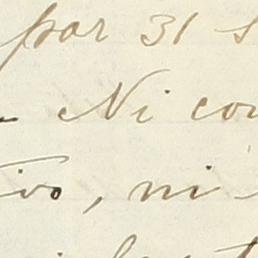 par 31 s
Ni con
ivo, ni